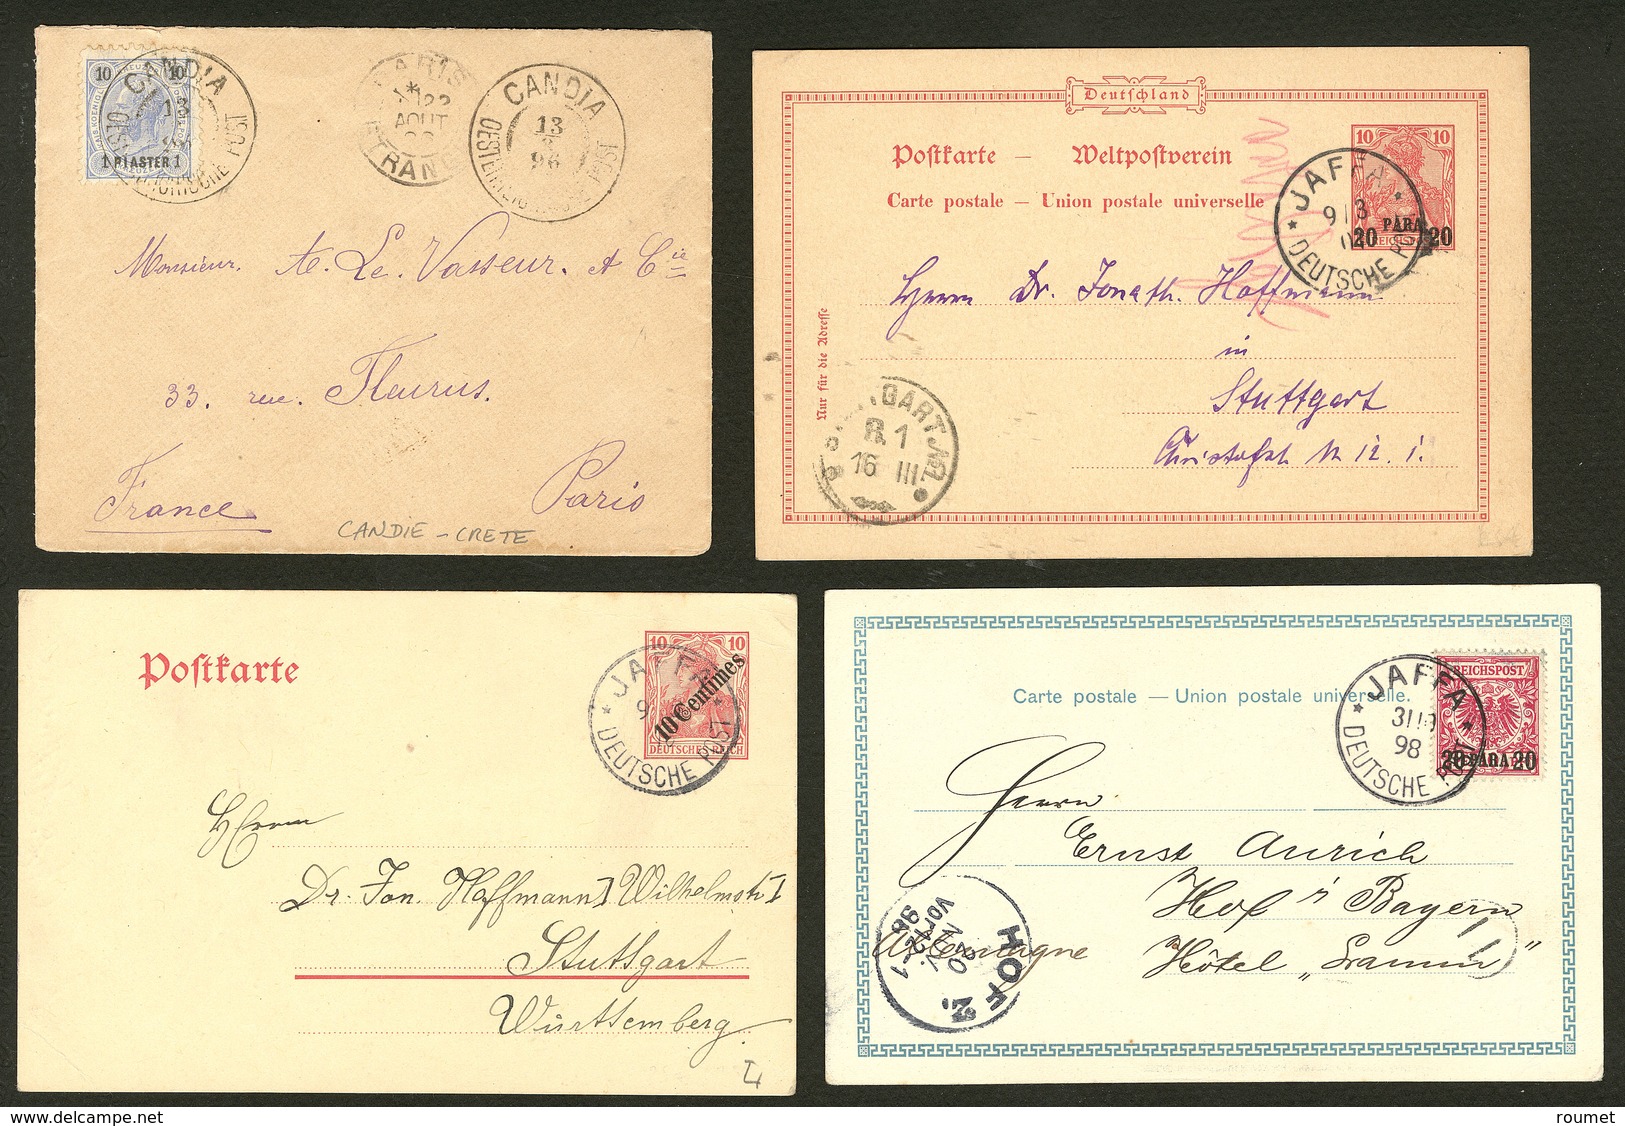 10 10
1 PIASTER 1
CANDIA
POST
PARIS
22
AOUT
ETRANG
CANDIA
13
96
POST
Monsieur. A. Le Vasseur. et Cie
33. rue. Fleurus.
France
Paris
CANDIE - CRETE
Deutschland
Postkarte — Weltpostverein
Carte postale — Union postale universelle
10 10
20 PARA 20
JAFFA
9 3
DEUTSCHE POST
Nur für die Adresse
Herrn Dr. Jonath. Hoffmann
in
Stuttgart
STUTTGART No 1
R. 1
16 III
Postkarte
10 10
10 Centimes
DEUTSCHES REICH
JAFFA
9
DEUTSCHE POST
Herrn
Dr. Jon. Hoffmann Wilhelmstr. 1
Stuttgart
Württemberg
Carte postale — Union postale universelle.
REICHSPOST
20 PARA 20
JAFFA
98
DEUTSCHE POST
Herrn
Ernst Aurich
Hof i/ Bayern
Allemagne
Hôtel „
HOF 2.
20
NOV.
Vor 12-1
98
delcampe.net
roumet